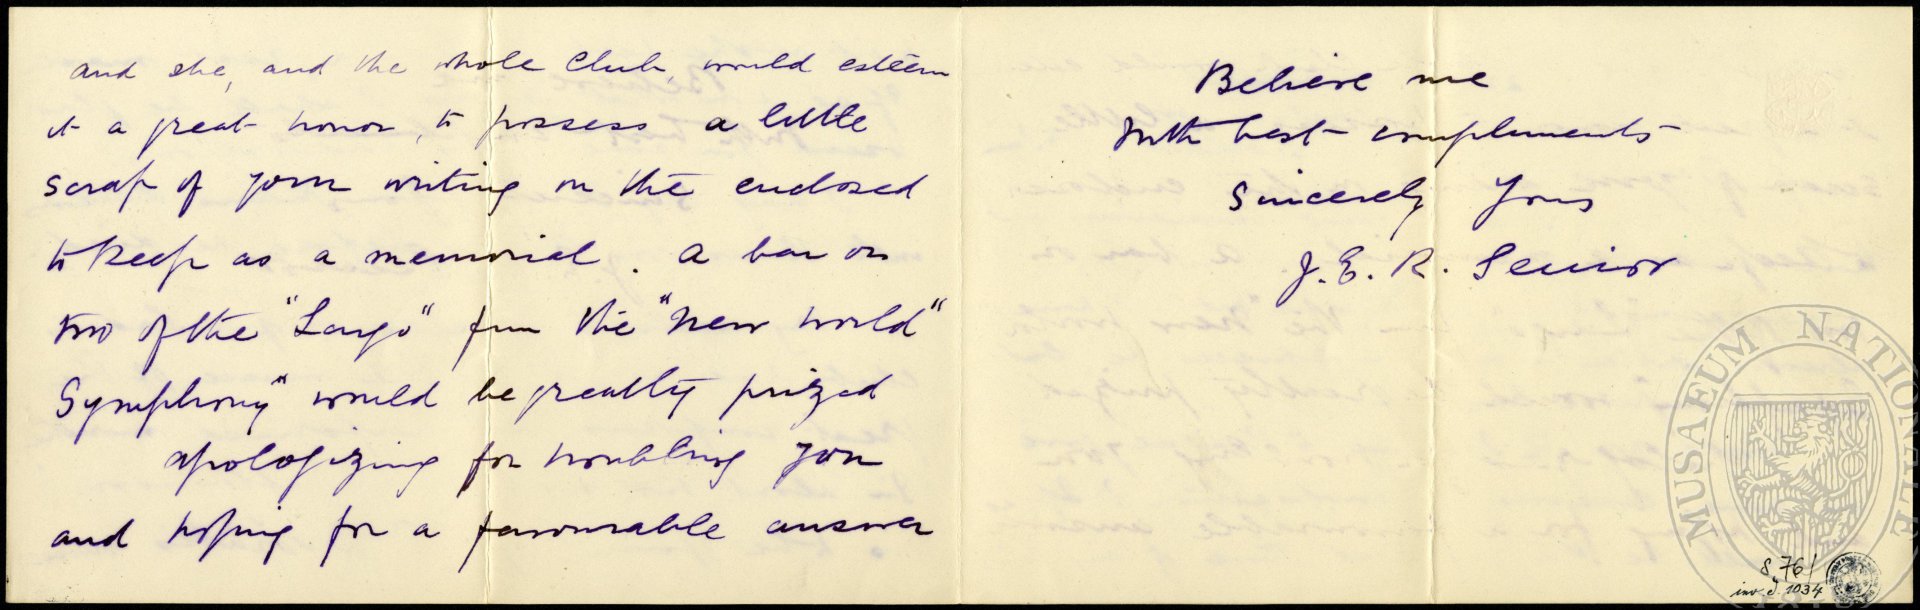 and she, and the whole Club, would esteem
it a great honor, to possess a little
scrap of your writing on the enclosed
to keep as a memorial. A bar or
two of the "Largo" from the "New World"
Symphony" would be greatly prized
apologizing for troubling you
and hoping for a favourable answer
Believe me
With best compliments
Sincerely Yours
J. E. R. Senior
MUSAEUM NATIONALE
S. 76/
inv. č. 1034